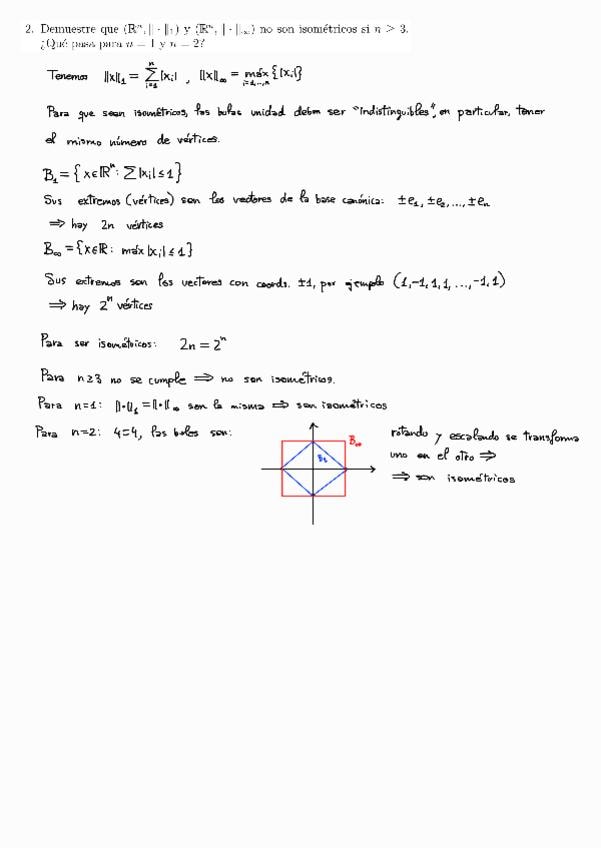 2. Demuestre que (ℝⁿ, ‖·‖₁) y (ℝⁿ, ‖·‖∞) no son isométricos si n ≥ 3.
¿Qué pasa para n = 1 y n = 2?
Tenemos ‖x‖₁ = ∑ᵢ₌₁ⁿ |xᵢ| , ‖x‖∞ = máx_{i=1,...,n} {|xᵢ|}
Para que sean isométricos, las bolas unidad deben ser "indistinguibles", en particular, tener
el mismo número de vértices.
B₁ = {x∈ℝⁿ: ∑|xᵢ| ≤ 1}
Sus extremos (vértices) son los vectores de la base canónica: ±e₁, ±e₂, ..., ±eₙ
⇒ hay 2n vértices
B∞ = {x∈ℝ: máx |xᵢ| ≤ 1}
Sus extremos son los vectores con coords. ±1, por ejemplo (1,-1,1,1,...,-1,1)
⇒ hay 2ⁿ vértices
Para ser isométricos: 2n = 2ⁿ
Para n≥3 no se cumple ⇒ no son isométricos.
Para n=1: ‖·‖₁ = ‖·‖∞ son la misma ⇒ son isométricos
Para n=2: 4=4, las bolas son:
B∞
B₁
rotando y escalando se transforma
uno en el otro ⇒
⇒ son isométricos